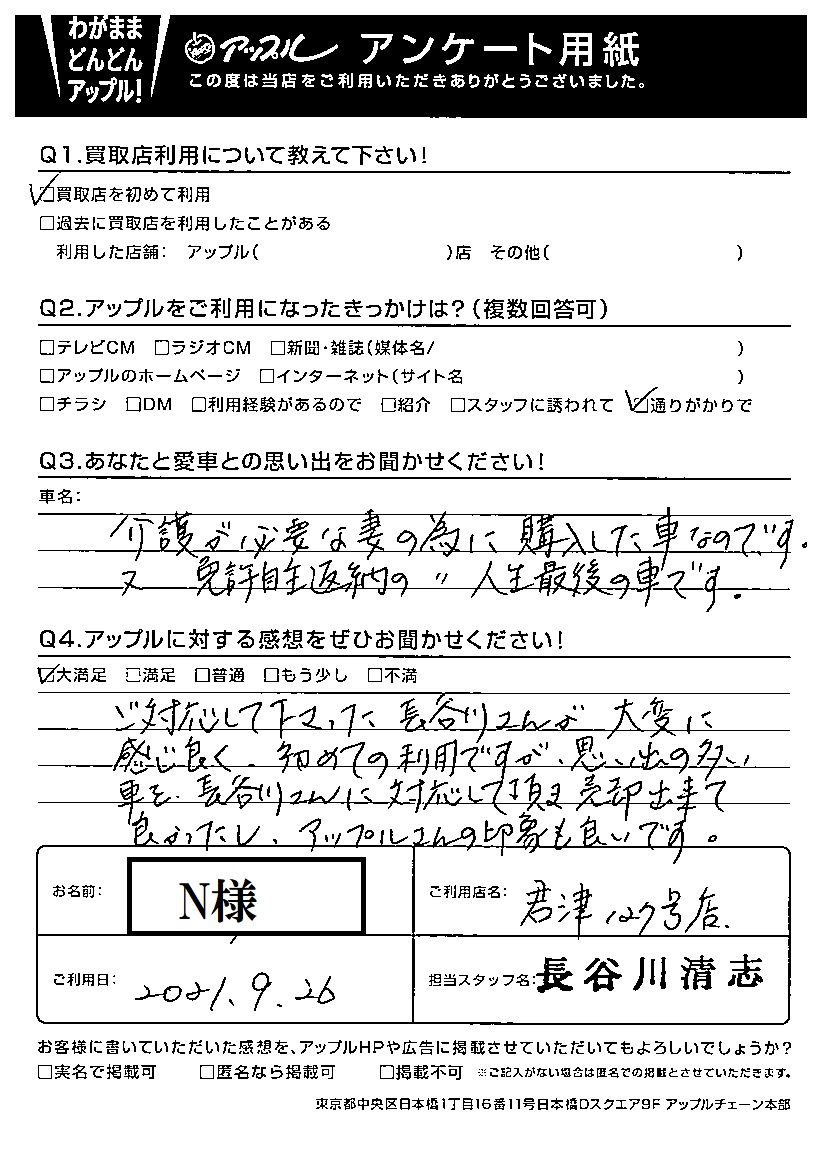 わがまま
どんどん
アップル!
アップル アンケート用紙
この度は当店をご利用いただきありがとうございました。
Q1.買取店利用について教えて下さい!
☑買取店を初めて利用
□過去に買取店を利用したことがある
利用した店舗: アップル( )店 その他( )
Q2.アップルをご利用になったきっかけは?(複数回答可)
□テレビCM □ラジオCM □新聞・雑誌(媒体名/ )
□アップルのホームページ □インターネット(サイト名 )
□チラシ □DM □利用経験があるので □紹介 □スタッフに誘われて ☑通りがかりで
Q3.あなたと愛車との思い出をお聞かせください!
車名:
介護が必要な妻の為に購入した車なのです.
又 免許自主返納の〃人生最後の車です.
Q4.アップルに対する感想をぜひお聞かせください!
☑大満足 □満足 □普通 □もう少し □不満
ご対応して下さった長谷川さんが大変に
感じ良く、初めての利用ですが、思い出の多い
車を、長谷川さんに対応して頂き売却出来て
良かったし、アップルさんの印象も良いです。
お名前: N様
ご利用店名: 君津127号店.
ご利用日: 2021.9.26
担当スタッフ名: 長谷川清志
お客様に書いていただいた感想を、アップルHPや広告に掲載させていただいてもよろしいでしょうか?
□実名で掲載可 □匿名なら掲載可 □掲載不可 ※ご記入がない場合は匿名での掲載とさせていただきます。
東京都中央区日本橋1丁目16番11号日本橋Dスクエア9F アップルチェーン本部